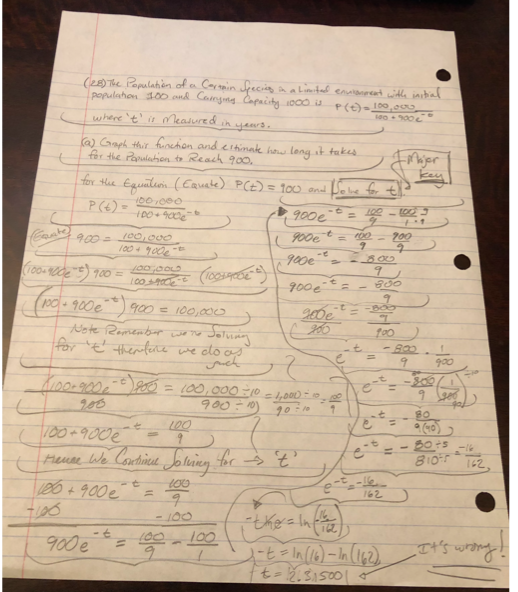 (28) The Population of a Certain Species in a limited environment with initial
population 100 and Carrying Capacity 1000 is P(t) = 100,000 / 100+900e^-t
where 't' is Measured in years.
(a) Graph this function and estimate how long it takes
for the Population to Reach 900.
for the Equation (Equate) P(t) = 900 and Solve for t
Major
Key
P(t) = 100,000 / 100+900e^-t
(Equate) 900 = 100,000 / 100+900e^-t
(100+900e^-t) 900 = 100,000 / 100+900e^-t (100+900e^-t)
(100+900e^-t) 900 = 100,000
Note Remember we're Solving
for 't' therefore we do as
such
(100+900e^-t) 900 / 900 = 100,000 ÷10 / 900 ÷10 = 1,000 ÷10 / 90 ÷10 = 100 / 9
100+900e^-t = 100 / 9
Hence We Continue Solving for → 't'
100+900e^-t = 100 / 9
-100 -100
900e^-t = 100 / 9 - 100 / 1
900e^-t = 100 / 9 - 100·9 / 1·9
900e^-t = 100 / 9 - 900 / 9
900e^-t = -800 / 9
900e^-t = -800 / 9
900e^-t / 900 = -800 / 9 / 900
e^-t = -800 / 9 · 1 / 900
e^-t = -800 / 9 (1 / 900)
e^-t = -80 / 9(90)
e^-t = -80÷5 / 810÷5 = -16 / 162
e^-t = -16 / 162
-t = ln(16 / 162)
-t = ln(16) - ln(162)
t = 2.315001
It's wrong!